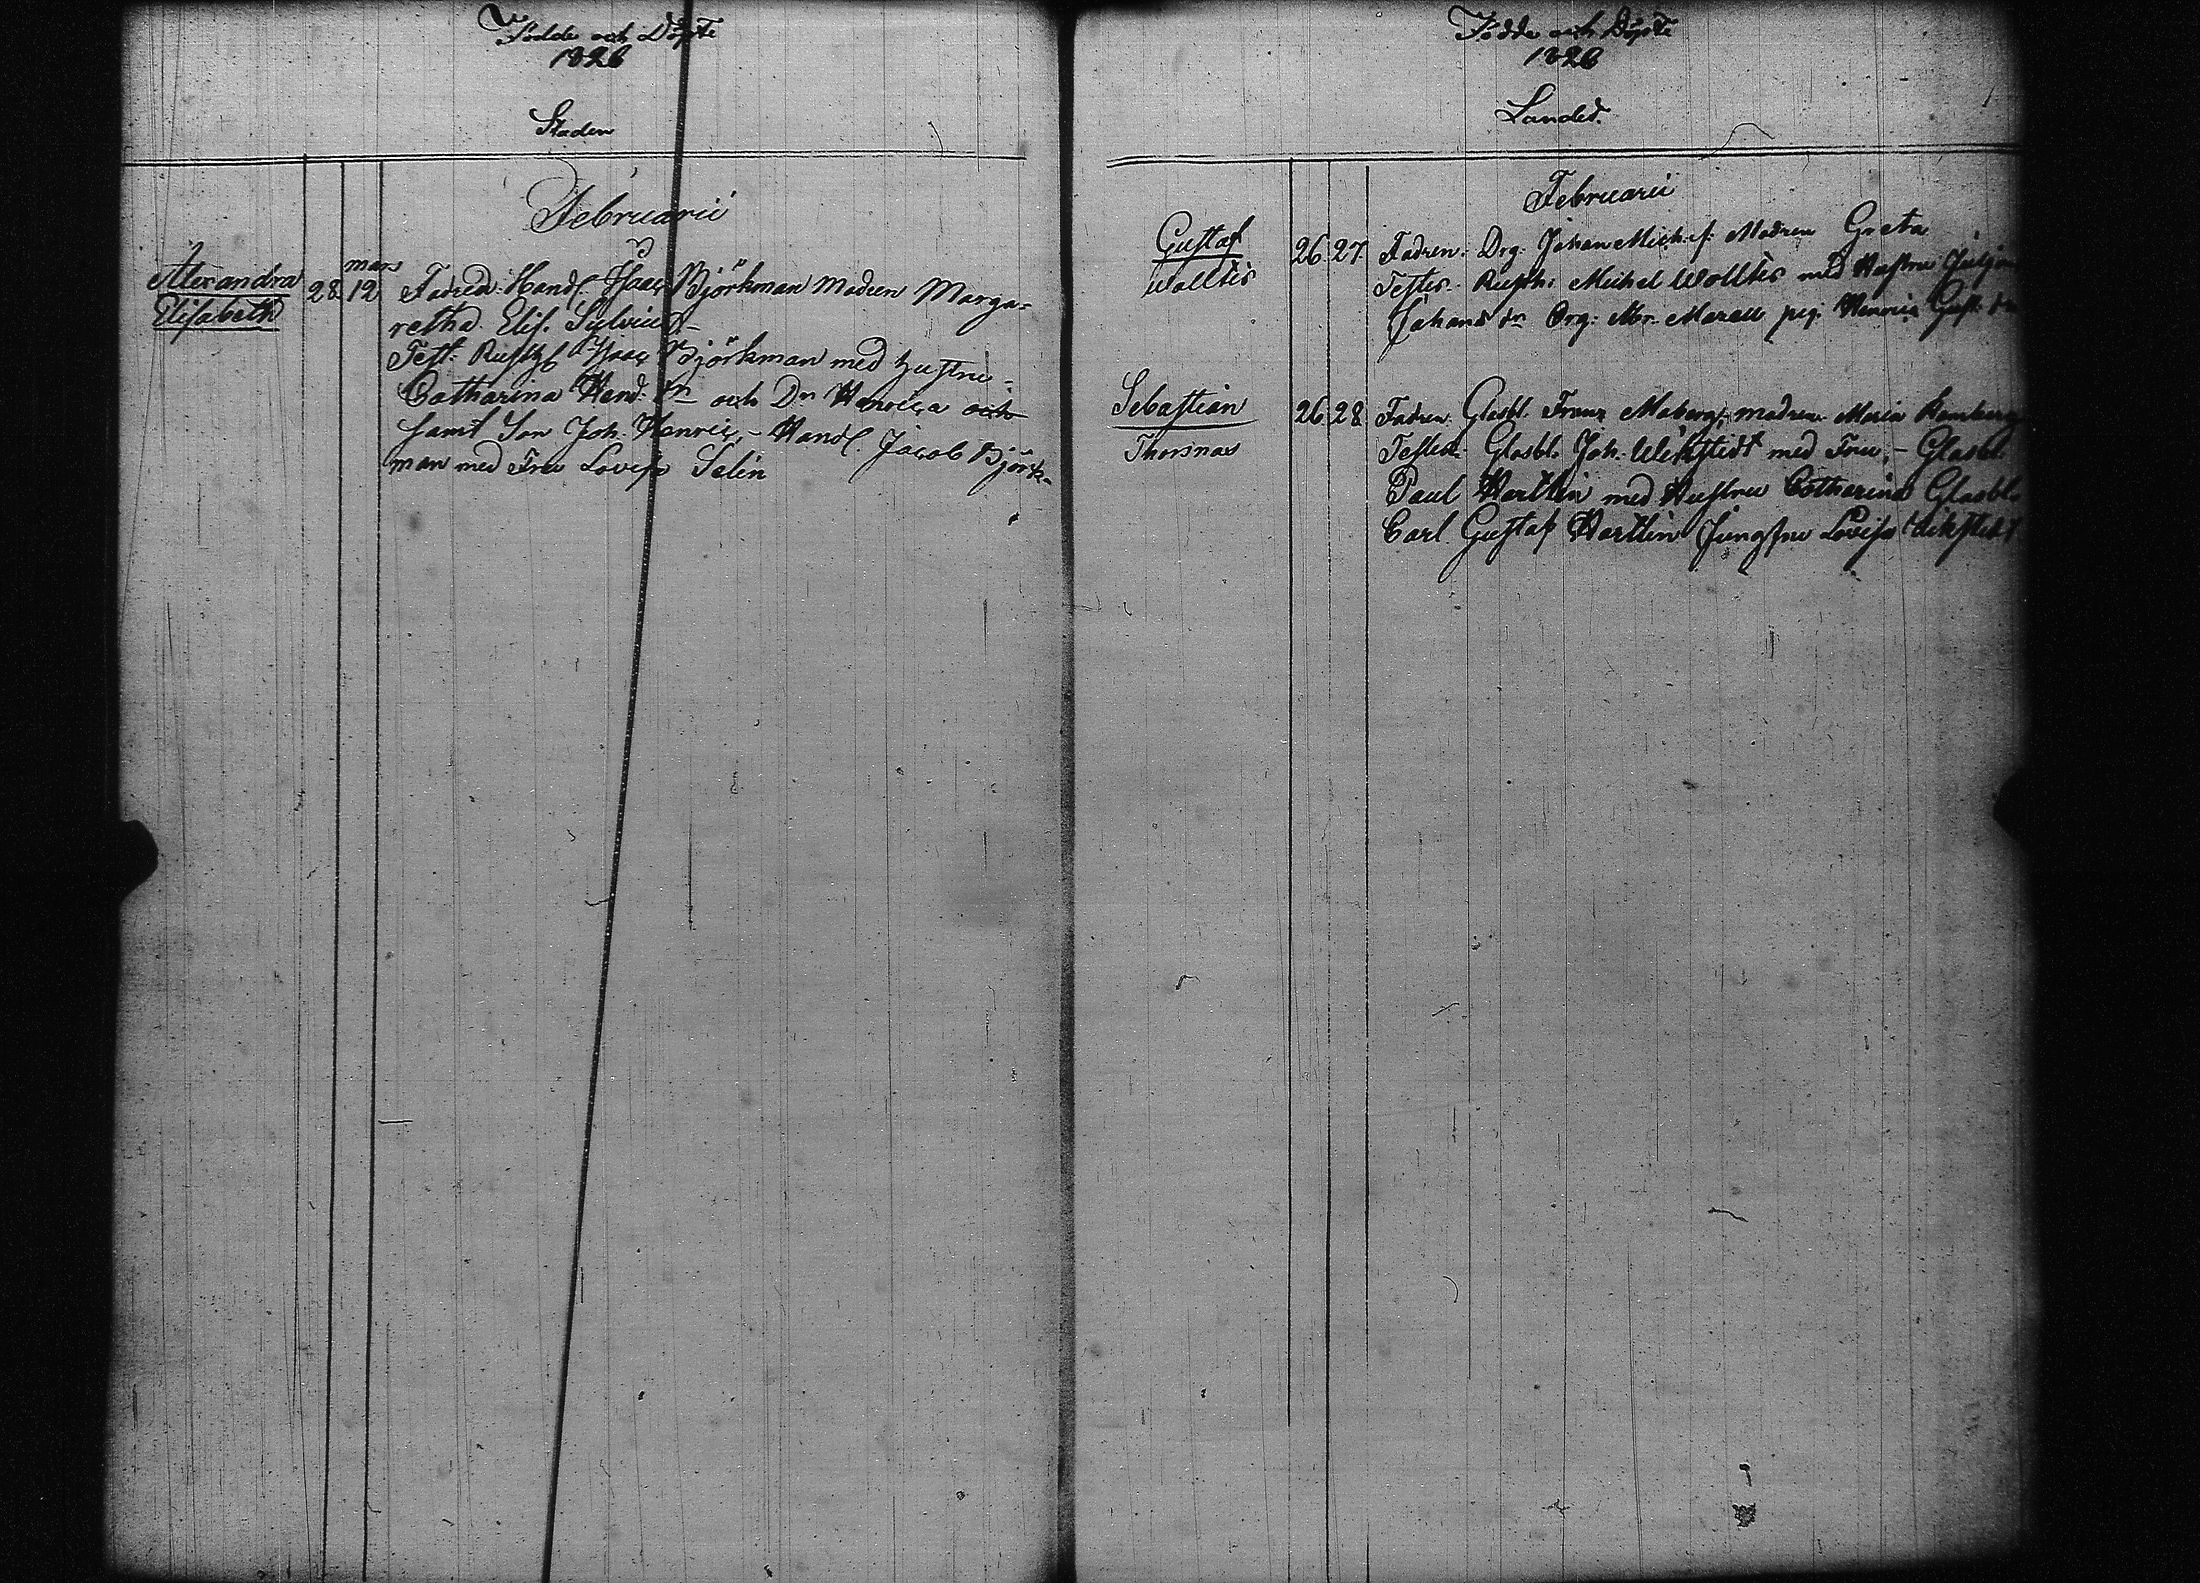 Födde och Döpte
1826
Staden
Februarii
Alexandra
Elisabeth
28
mars
12
Fadren: Handl Isaac Björkman Modren Marga=
retha Elis. Sulvius
Test: Rusth Isaac Björkman med hustru
Catharina Hend: dr och Dr Henrica och
samt Son Joh. Henric, - Handl. Jacob Björk=
man med Fru Lovisa Selin
Födde och Döpte
1826
Landet.
Februarii
Gustaf
Wolltis
26 27
Fadren: Drg. Johan Mich: s: Modren Greta
Testes. Rusth: Michel Wolltis med Hustru
Johans dr Drg: Abr. pig: Henrica Gust. dr
Sebastian
Thorsnas
26 28
Fadren Glasbl. Franz Moberg, modren Maria
Testes: Glasbl. Joh. Wikstedt med Fru, - Glasbl.
Paul Hartlin med Hustru Catharina Glasbl.
Carl Gustaf Hartlin Jungfru Lovisa Wikstedt